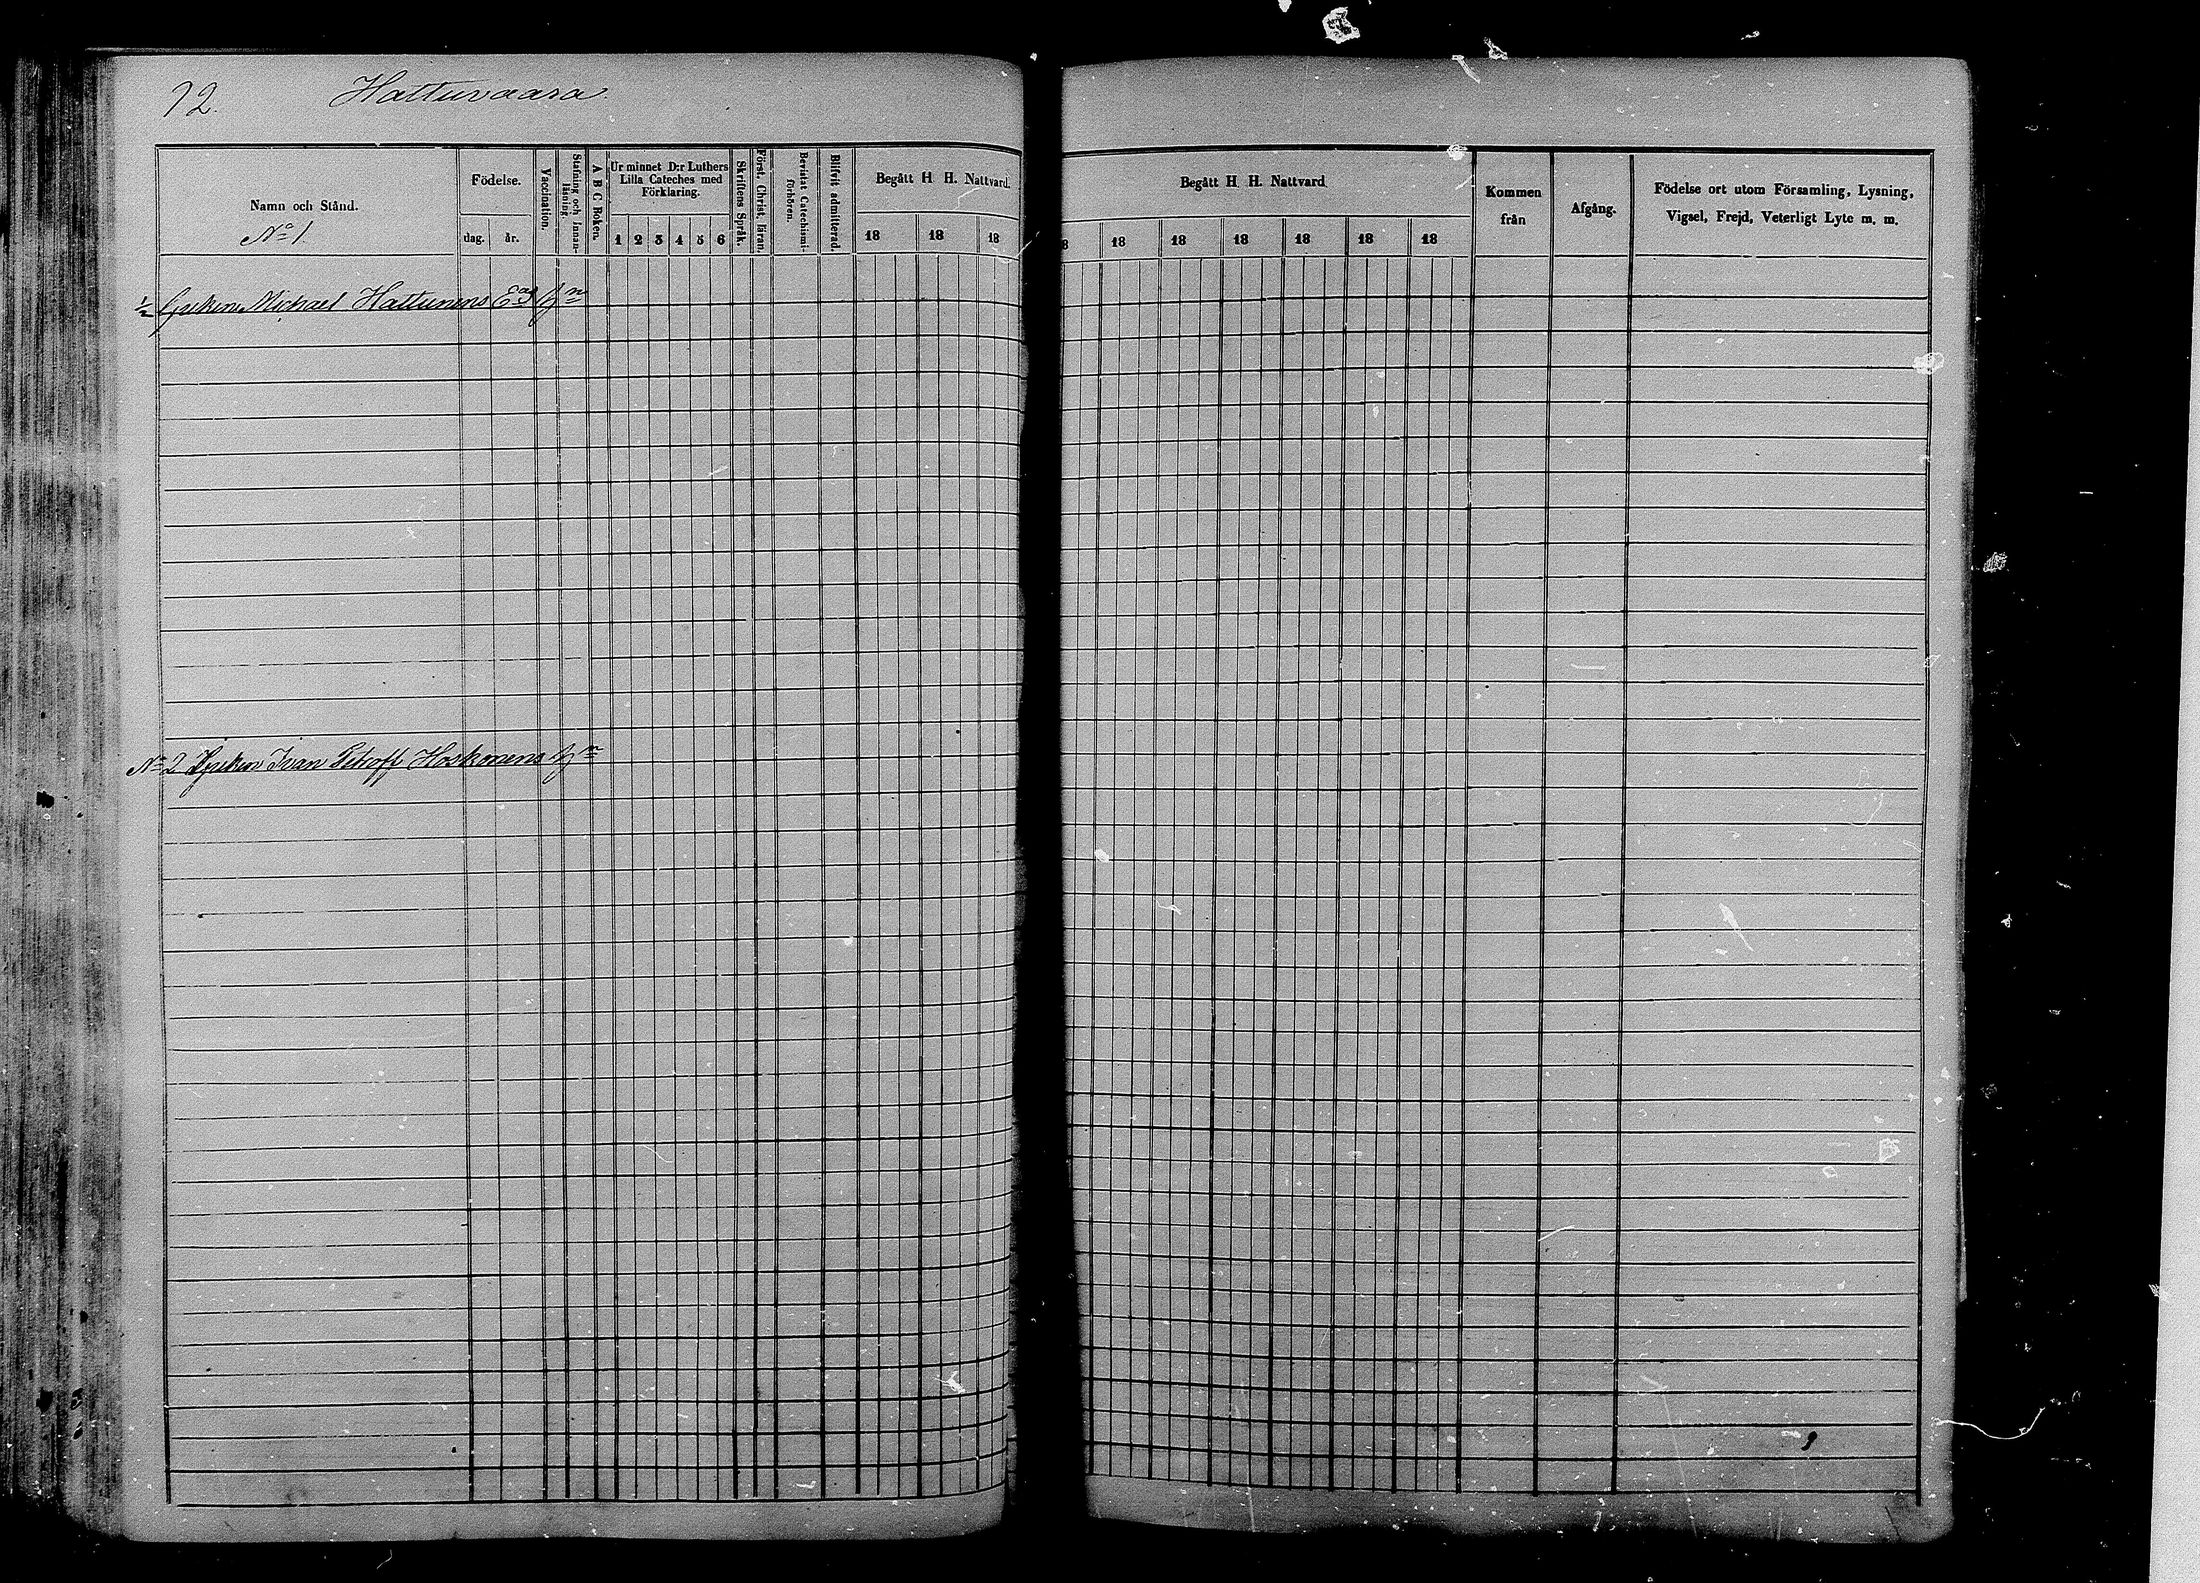 72. Hattuvaara.
Namn och Stånd.
No 1
Födelse.
dag. år.
Vaccination.
Stafning och Innan-
läsning.
A B C Boken.
Ur minnet D:r Luthers
Lilla Cateches med
Förklaring.
1 2 3 4 5 6
Skriftens Språk.
Först. Christ. läran.
Bevistat Catechismi-
förhören.
Blifvit admitterad.
Begått H. H. Nattvard.
18 18 18
Begått H. H. Nattvard.
8 18 18 18 18 18 18
Kommen
från
Afgång.
Födelse ort utom Församling, Lysning,
Vigsel, Frejd, Veterligt Lyte m. m.
1/2 Michael Hattunens
No 2 Ivan Hoskonens